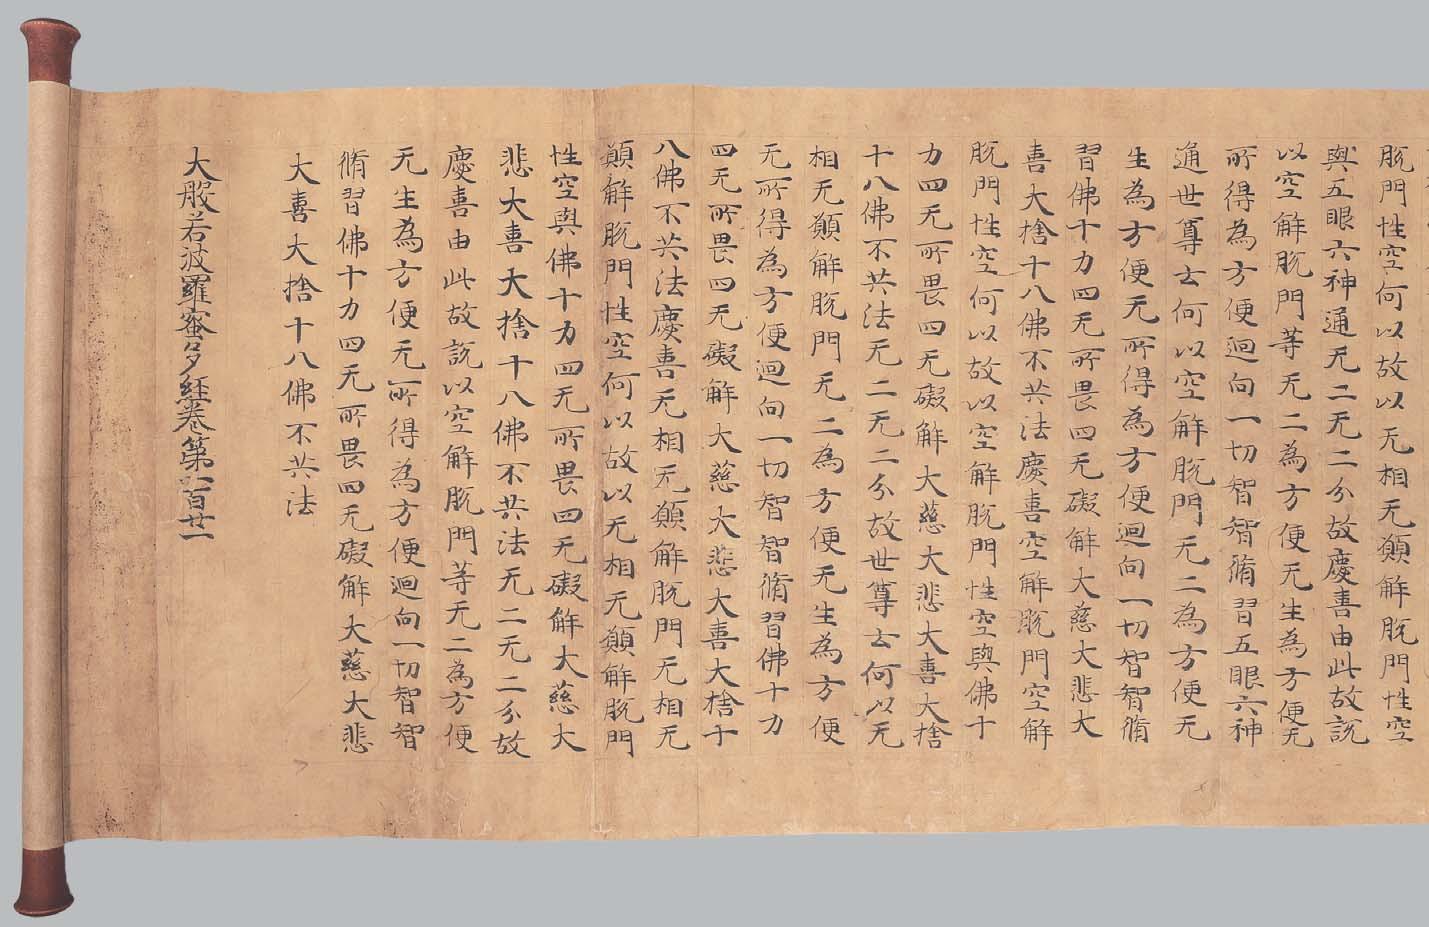 脫門性空何以故以无相无願解脫門性空
與五眼六神通无二无二分故慶喜由此故說
以空解脫門等无二為方便无生為方便无
所得為方便迴向一切智智脩習五眼六神
通世尊云何以空解脫門无二為方便无
生為方便无所得為方便迴向一切智智脩
習佛十力四无所畏四无礙解大慈大悲大
喜大捨十八佛不共法慶喜空解脫門空解
脫門性空何以故以空解脫門性空與佛十
力四无所畏四无礙解大慈大悲大喜大捨
十八佛不共法无二无二分故世尊云何以无
相无願解脫門无二為方便无生為方便
无所得為方便迴向一切智智脩習佛十力
四无所畏四无礙解大慈大悲大喜大捨十
八佛不共法慶喜无相无願解脫門无相无
願解脫門性空何以故以无相无願解脫門
性空與佛十力四无所畏四无礙解大慈大
悲大喜大捨十八佛不共法无二无二分故
慶喜由此故說以空解脫門等无二為方便
无生為方便无所得為方便迴向一切智智
脩習佛十力四无所畏四无礙解大慈大悲
大喜大捨十八佛不共法
大般若波羅蜜多經卷第一百廿一